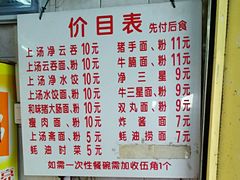 价目表 先付后食
上汤净云吞10元
上汤云吞面、粉10元
上汤净水饺10元
上汤水饺面、粉10元
和味猪大肠面、粉10元
瘦肉面、粉10元
上汤斋面、粉5元
蚝油时菜5元
猪手面、粉11元
牛腩面、粉11元
净三星9元
牛三星面、粉9元
双丸面、粉9元
炸酱面7元
蚝油捞面7元
如需一次性餐碗需加收伍角1个